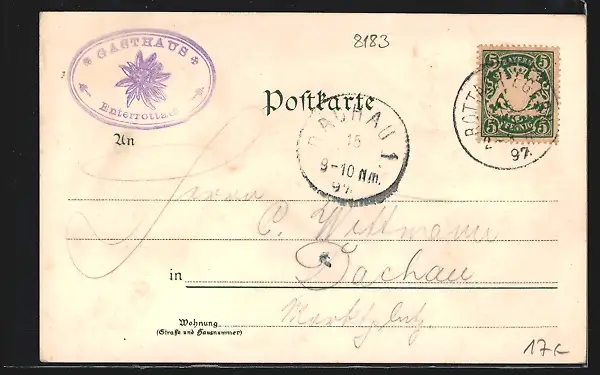 8183
GASTHAUS
Enterrottach
BAYERN
5 5
PFENNIG
5 5
ROTT
97.
Postkarte
DACHAU 1
16
9-10 Nm.
97.
An
Herrn
C. Wittmann
in Dachau
Marktplatz
Wohnung
(Straße und Hausnummer)
17 c